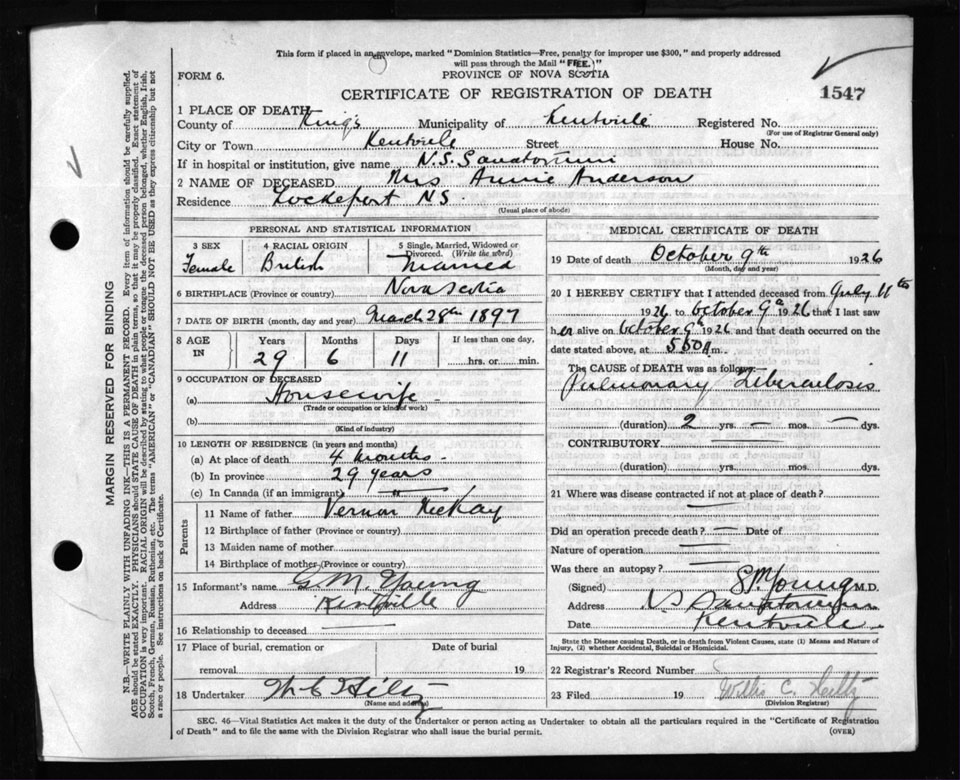 This form if placed in an envelope, marked "Dominion Statistics—Free, penalty for improper use $300," and properly addressed
will pass through the Mail "FREE."
FORM 6.
PROVINCE OF NOVA SCOTIA
CERTIFICATE OF REGISTRATION OF DEATH
1547
1 PLACE OF DEATH
County of King's Municipality of Kentville Registered No.
(For use of Registrar General only)
City or Town Kentville Street House No.
If in hospital or institution, give name N.S. Sanatorium
2 NAME OF DECEASED Mrs Annie Anderson
Residence Lockeport N.S.
(Usual place of abode)
PERSONAL AND STATISTICAL INFORMATION
3 SEX 4 RACIAL ORIGIN 5 Single, Married, Widowed or
Divorced. (Write the word)
Female British Married
6 BIRTHPLACE (Province or country) Nova Scotia
7 DATE OF BIRTH (month, day and year) March 28th 1897
8 AGE IN Years Months Days If less than one day,
29 6 11 hrs. or min.
9 OCCUPATION OF DECEASED
(a) Housewife
(Trade or occupation or kind of work)
(b)
(Kind of industry)
10 LENGTH OF RESIDENCE (in years and months)
(a) At place of death 4 months
(b) In province 29 years
(c) In Canada (if an immigrant) "
Parents
11 Name of father Vernon McKay
12 Birthplace of father (Province or country)
13 Maiden name of mother
14 Birthplace of mother (Province or country)
15 Informant's name G. M. Young
Address Kentville
16 Relationship to deceased
17 Place of burial, cremation or Date of burial
removal 19
18 Undertaker
(Name and address)
MEDICAL CERTIFICATE OF DEATH
19 Date of death October 9th 1926
(Month, day and year)
20 I HEREBY CERTIFY that I attended deceased from July 11th
1926 to October 9th 1926 that I last saw
her alive on October 9th 1926 and that death occurred on the
date stated above, at m.
The CAUSE OF DEATH was as follows:
Pulmonary Tuberculosis
(duration) 2 yrs. — mos. — dys.
CONTRIBUTORY
(duration) yrs. mos. dys.
21 Where was disease contracted if not at place of death?
Did an operation precede death? Date of
Nature of operation
Was there an autopsy?
(Signed) Young M.D.
Address N S Sanatorium
Date Kentville
State the Disease causing Death, or in death from Violent Causes, state (1) Means and Nature of
Injury, (2) whether Accidental, Suicidal or Homicidal.
22 Registrar's Record Number
23 Filed 19 C.
(Division Registrar)
SEC. 46—Vital Statistics Act makes it the duty of the Undertaker or person acting as Undertaker to obtain all the particulars required in the "Certificate of Registration
of Death" and to file the same with the Division Registrar who shall issue the burial permit. (OVER)
MARGIN RESERVED FOR BINDING
N.B.—WRITE PLAINLY WITH UNFADING INK—THIS IS A PERMANENT RECORD. Every item of information should be carefully supplied.
AGE should be stated EXACTLY. PHYSICIANS should STATE CAUSE OF DEATH in plain terms, so that it may be properly classified. Exact statement of
OCCUPATION is very important. RACIAL ORIGIN will be described by stating to what people or tongue the deceased person belonged, whether English, Irish,
Scotch, French, German, Russian, Ruthenian, etc. The terms "AMERICAN" or "CANADIAN" SHOULD NOT BE USED as they express citizenship but not
a race or people. See instructions on back of Certificate.